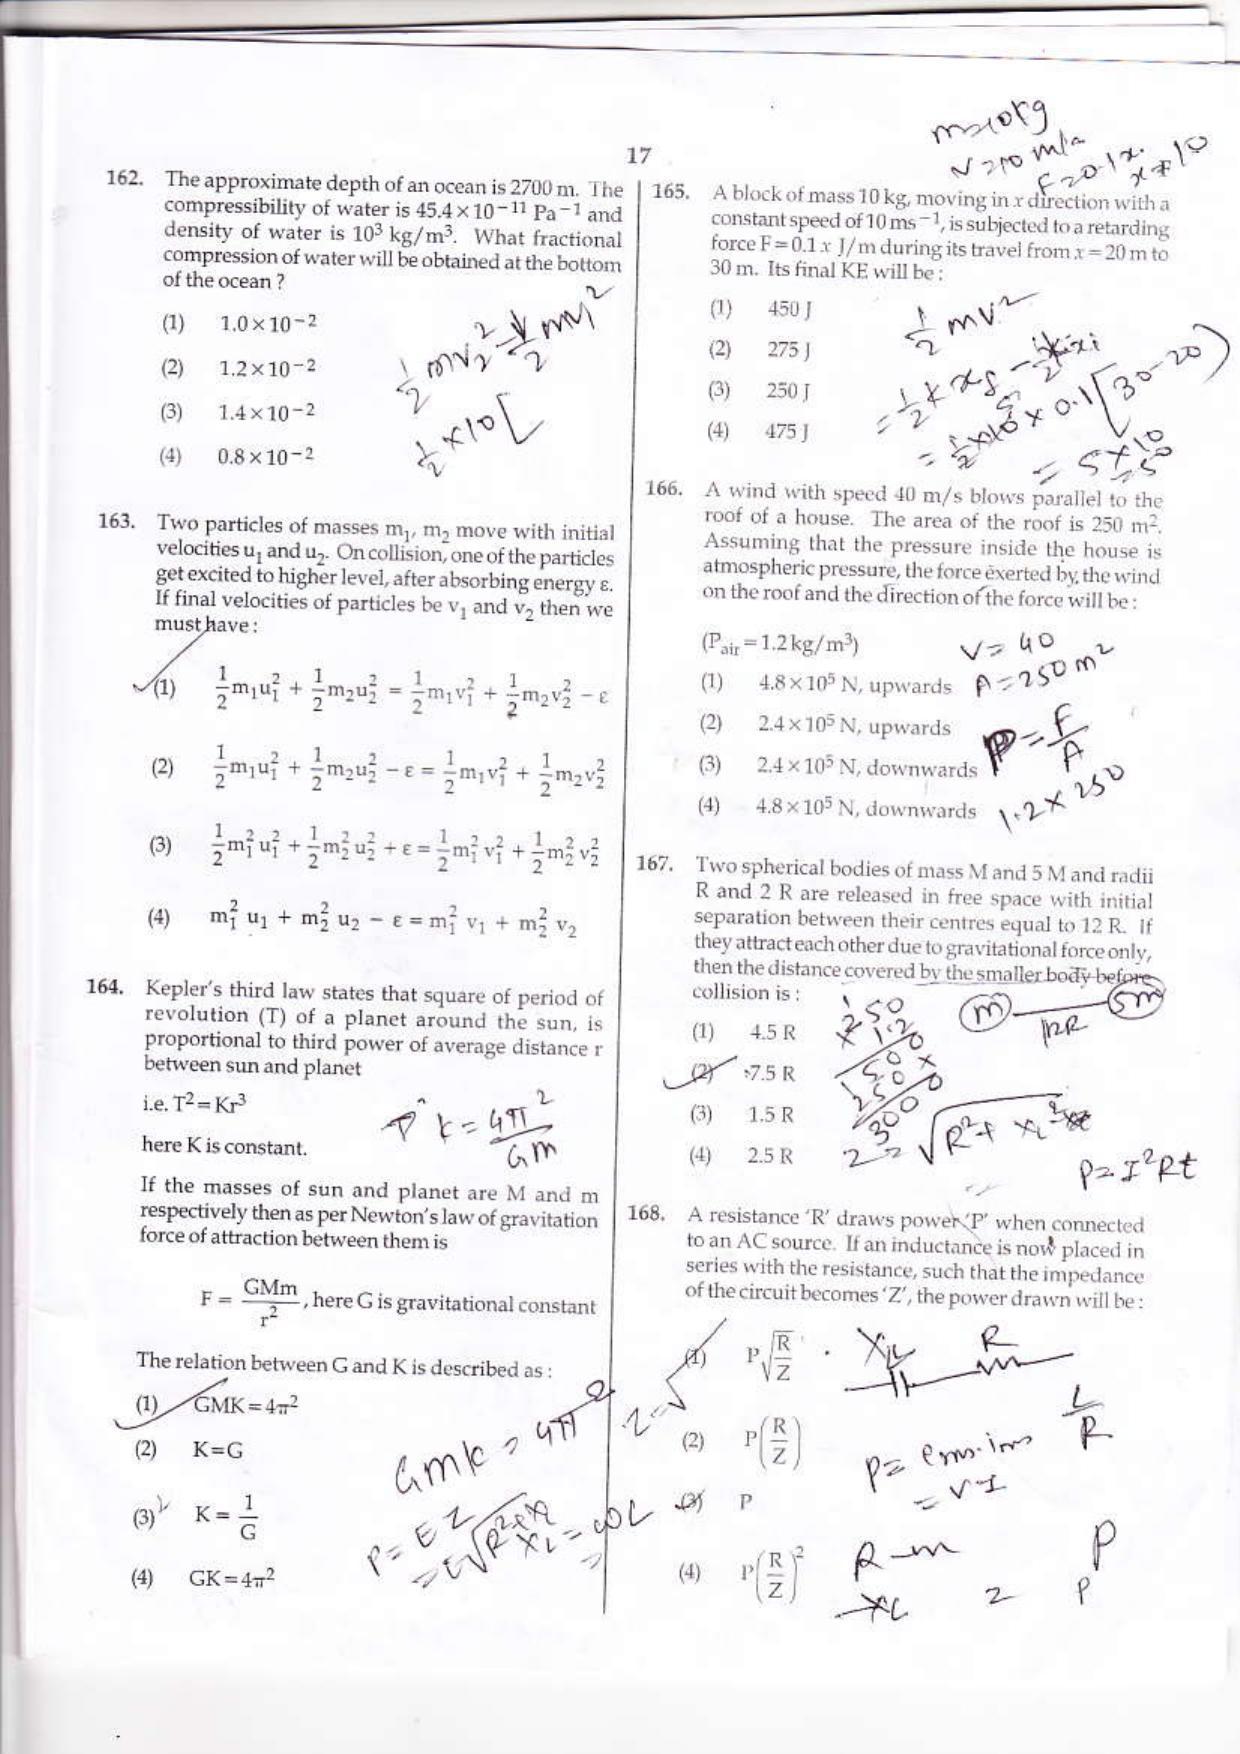 17
162. The approximate depth of an ocean is 2700 m. The
compressibility of water is 45.4 × 10⁻¹¹ Pa⁻¹ and
density of water is 10³ kg/m³. What fractional
compression of water will be obtained at the bottom
of the ocean ?
(1) 1.0 × 10⁻²
(2) 1.2 × 10⁻²
(3) 1.4 × 10⁻²
(4) 0.8 × 10⁻²
163. Two particles of masses m₁, m₂ move with initial
velocities u₁ and u₂. On collision, one of the particles
get excited to higher level, after absorbing energy ε.
If final velocities of particles be v₁ and v₂ then we
must have :
(1) 1/2 m₁u₁² + 1/2 m₂u₂² = 1/2 m₁v₁² + 1/2 m₂v₂² − ε
(2) 1/2 m₁u₁² + 1/2 m₂u₂² − ε = 1/2 m₁v₁² + 1/2 m₂v₂²
(3) 1/2 m₁²u₁² + 1/2 m₂²u₂² + ε = 1/2 m₁²v₁² + 1/2 m₂²v₂²
(4) m₁² u₁ + m₂² u₂ − ε = m₁² v₁ + m₂² v₂
164. Kepler's third law states that square of period of
revolution (T) of a planet around the sun, is
proportional to third power of average distance r
between sun and planet
i.e. T² = Kr³
here K is constant.
K = 4π²/GM
If the masses of sun and planet are M and m
respectively then as per Newton's law of gravitation
force of attraction between them is
F = GMm/r², here G is gravitational constant
The relation between G and K is described as :
(1) GMK = 4π²
(2) K = G
(3) K = 1/G
(4) GK = 4π²
GMK = 4π²
m=10kg
V=10 m/s
F=0.1x
165. A block of mass 10 kg, moving in x direction with a
constant speed of 10 ms⁻¹, is subjected to a retarding
force F = 0.1 x J/m during its travel from x = 20 m to
30 m. Its final KE will be :
(1) 450 J
(2) 275 J
(3) 250 J
(4) 475 J
1/2 mv²
= 5×10
= 50
166. A wind with speed 40 m/s blows parallel to the
roof of a house. The area of the roof is 250 m².
Assuming that the pressure inside the house is
atmospheric pressure, the force exerted by the wind
on the roof and the direction of the force will be :
(Pair = 1.2 kg/m³)
(1) 4.8 × 10⁵ N, upwards
(2) 2.4 × 10⁵ N, upwards
(3) 2.4 × 10⁵ N, downwards
(4) 4.8 × 10⁵ N, downwards
V = 40
A = 250 m²
P = F/A
1.2 × 250
167. Two spherical bodies of mass M and 5 M and radii
R and 2 R are released in free space with initial
separation between their centres equal to 12 R. If
they attract each other due to gravitational force only,
then the distance covered by the smaller body before
collision is :
(1) 4.5 R
(2) 7.5 R
(3) 1.5 R
(4) 2.5 R
m 5m
12R
250
× 1.2
P = I²Rt
168. A resistance 'R' draws power 'P' when connected
to an AC source. If an inductance is now placed in
series with the resistance, such that the impedance
of the circuit becomes 'Z', the power drawn will be :
(1) P√(R/Z)
(2) P(R/Z)
(3) P
(4) P(R/Z)²
XL R
L/R
= VI
P